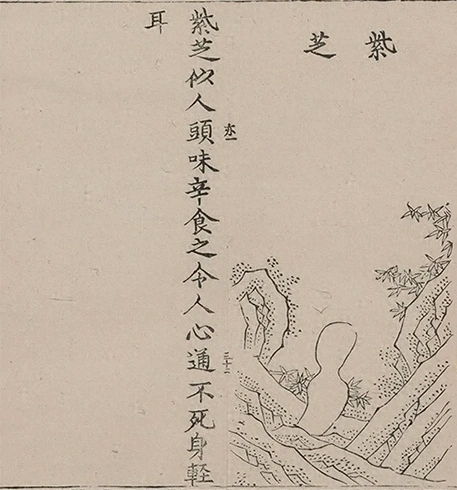 紫芝
紫芝似人頭味辛食之令人心通不死身軽
三十二
耳